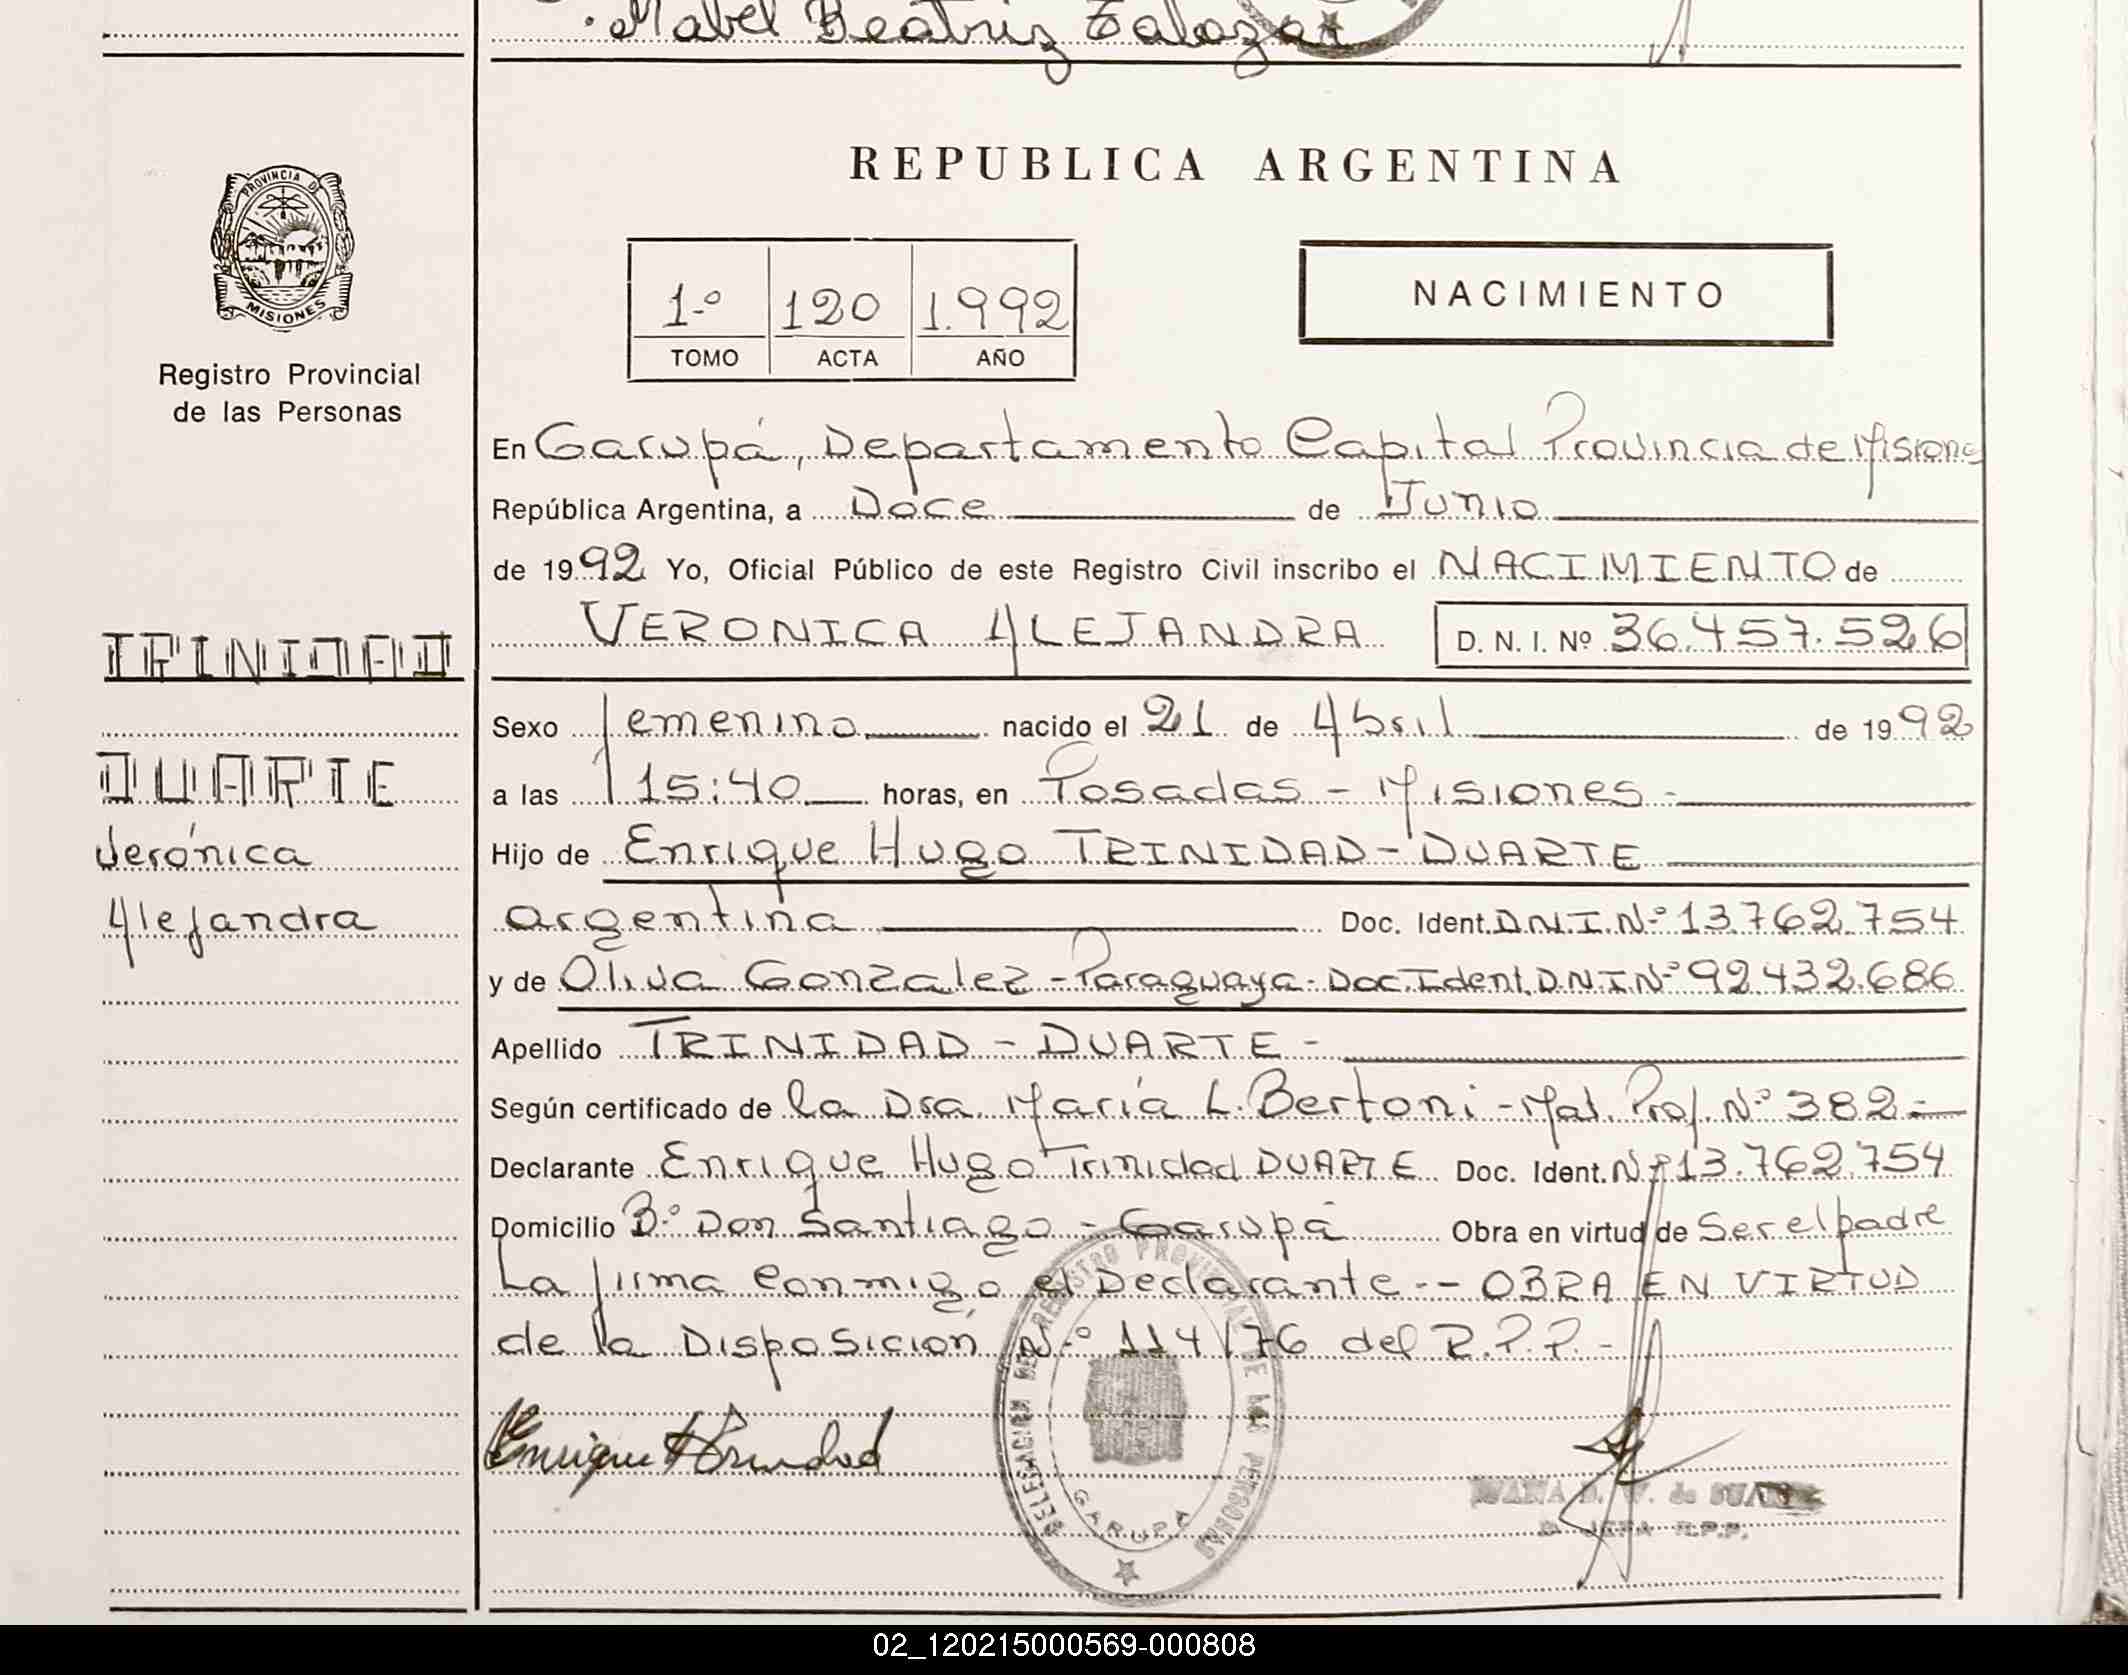 Mabel Beatriz Zalazar
PROVINCIA DE
MISIONES
Registro Provincial
de las Personas
REPUBLICA ARGENTINA
1º 120 1.992
TOMO ACTA AÑO
NACIMIENTO
En Garupá, Departamento Capital Provincia de Misiones
República Argentina, a Doce de Junio
de 1992 Yo, Oficial Público de este Registro Civil inscribo el NACIMIENTO de
VERONICA ALEJANDRA D. N. I. Nº 36.457.526
TRINIDAD
DUARTE
Verónica
Alejandra
Sexo femenino nacido el 21 de Abril de 1992
a las 15:40 horas, en Posadas - Misiones -
Hijo de Enrique Hugo TRINIDAD - DUARTE
argentina Doc. Ident. D.N.I. Nº 13.762.754
y de Oliva Gonzalez - Paraguaya - Doc. Ident. D.N.I Nº 92.432.686
Apellido TRINIDAD - DUARTE -
Según certificado de la Dra María L. Bertoni - Mat. Prof. Nº 382 -
Declarante Enrique Hugo Trinidad DUARTE Doc. Ident. Nº 13.762.754
Domicilio Bº Don Santiago - Garupá Obra en virtud de Ser el padre
La firma conmigo el Declarante -- OBRA EN VIRTUD
de la Disposición Nº 114/76 del R.P.P. -
Enrique H Trinidad
DELEGACION DEL REGISTRO PROVINCIAL DE LAS PERSONAS
GARUPA
JEFA R.P.P.
02_120215000569-000808